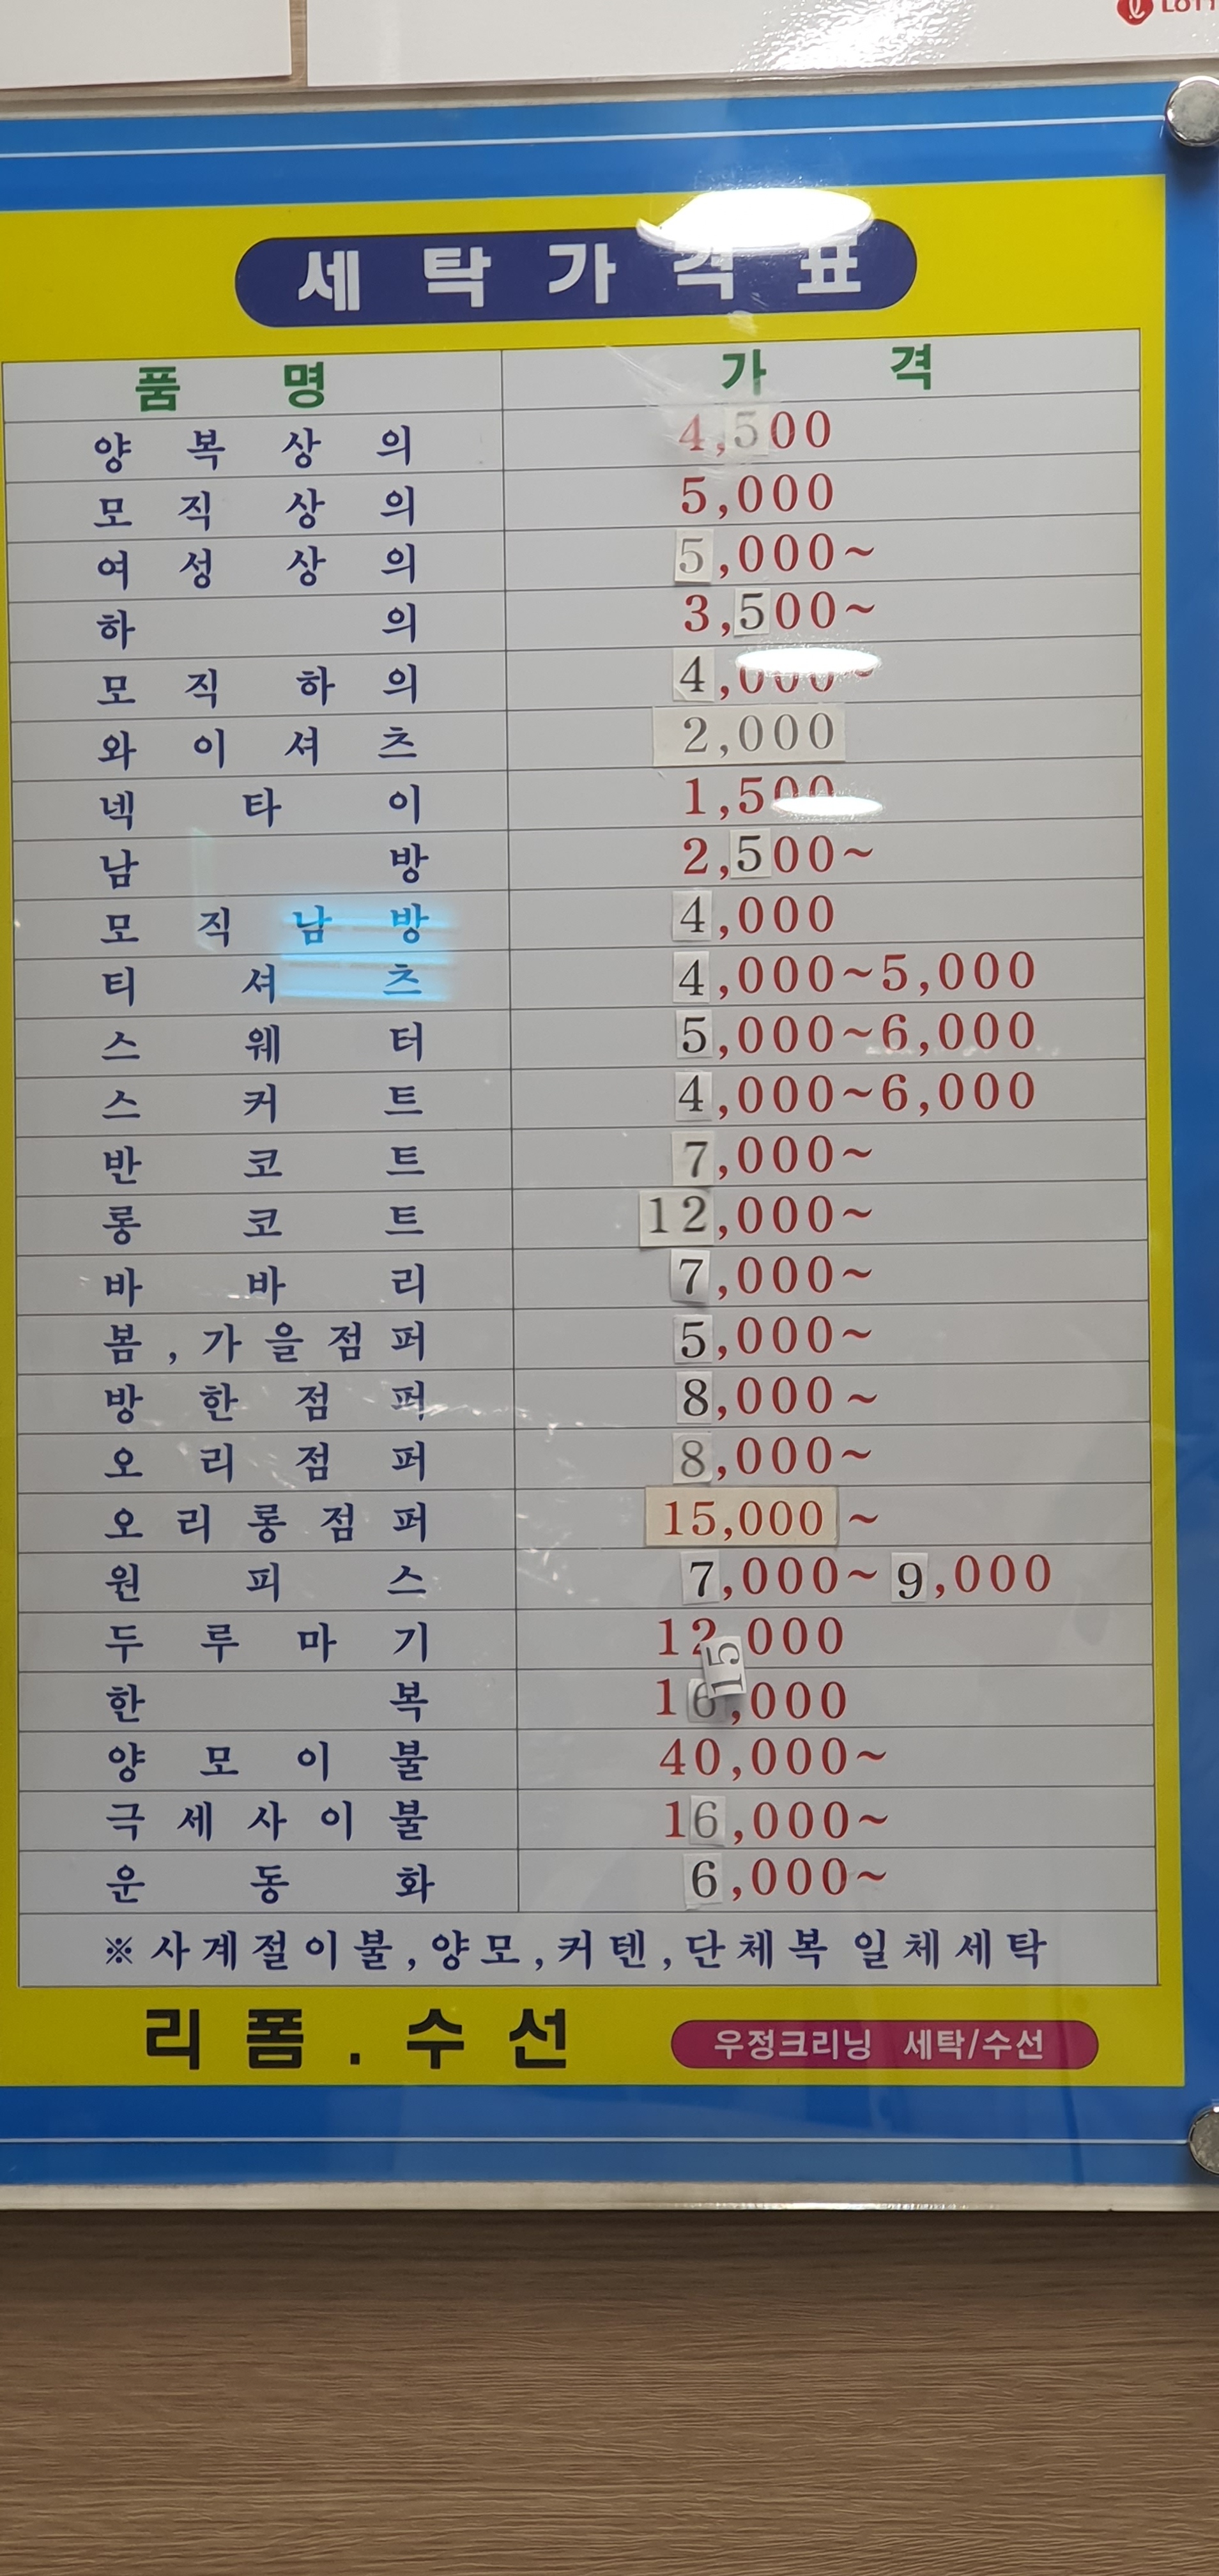 LOTT
세탁가격표
품명 가격
양복상의 4,500
모직상의 5,000
여성상의 5,000~
하의 3,500~
모직하의 4,000~
와이셔츠 2,000
넥타이 1,500
남방 2,500~
모직남방 4,000
티셔츠 4,000~5,000
스웨터 5,000~6,000
스커트 4,000~6,000
반코트 7,000~
롱코트 12,000~
바바리 7,000~
봄,가을점퍼 5,000~
방한점퍼 8,000~
오리점퍼 8,000~
오리롱점퍼 15,000 ~
원피스 7,000~9,000
두루마기 12,000
15
한복 16,000
양모이불 40,000~
극세사이불 16,000~
운동화 6,000~
※사계절이불,양모,커텐,단체복 일체세탁
리폼.수선 우정크리닝 세탁/수선